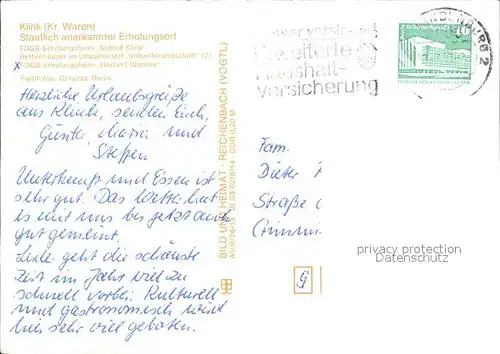 Klink (Kr. Waren)
Staatlich anerkannter Erholungsort
FDGB-Erholungsheim „Schloß Klink“
Bettenhäuser im Urlauberdorf „Völkerfreundschaft“ (2)
x FDGB-Erholungsheim „Herbert Warnke“
Farbfotos: Darazsz, Berlin
Herzliche Urlaubsgrüße
aus Klink, senden Euch,
Günter, Maria und
Steffen
Unterkunft und Essen ist
sehr gut. Das Wetter hat
es mit uns bis jetzt auch
gut gemeint.
Leider geht die schönste
Zeit im Jahr viel zu
schnell vorbei. Kulturell
und gastronomisch wird
hier sehr viel geboten.
BILD UND HEIMAT · REICHENBACH (VOGTL)
besser versichert
Erweiterte
Haushalt-
versicherung
10
2
Fam.
Dieter
Straße
privacy protection
Datenschutz